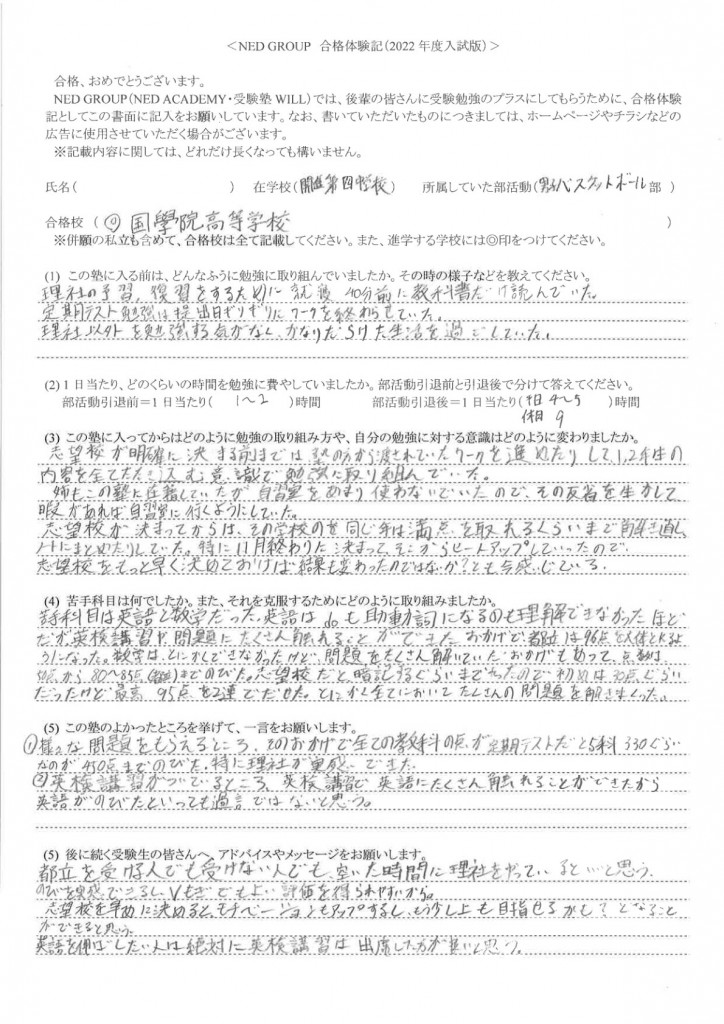 ＜NED GROUP 合格体験記（2022 年度入試版）＞
合格、おめでとうございます。
NED GROUP（NED ACADEMY・受験塾 WILL）では、後輩の皆さんに受験勉強のプラスにしてもらうために、合格体験
記としてこの書面に記入をお願いしています。なお、書いていただいたものにつきましては、ホームページやチラシなどの
広告に使用させていただく場合がございます。
※記載内容に関しては、どれだけ長くなっても構いません。
氏名（ ） 在学校（開進第四中学校） 所属していた部活動（男子バスケットボール部 ）
合格校 （ ◎国學院高等学校 ）
※併願の私立も含めて、合格校は全て記載してください。また、進学する学校には◎印をつけてください。
(1) この塾に入る前は、どんなふうに勉強に取り組んでいましたか。その時の様子などを教えてください。
理社の予習、復習をするために就寝40分前に教科書だけ読んでいた。
定期テスト勉強は提出日ギリギリにワークを終わらせていた。
理社以外を勉強する気がなく、かなりだらけた生活を過ごしていた。
(2) 1 日当たり、どのくらいの時間を勉強に費やしていましたか。部活動引退前と引退後で分けて答えてください。
部活動引退前＝1 日当たり（ 1〜2 ）時間 部活動引退後＝1 日当たり（平日 4〜5 ）時間
休日 9
(3) この塾に入ってからはどのように勉強の取り組み方や、自分の勉強に対する意識はどのように変わりましたか。
志望校が明確に決まる前までは塾の方から渡されていたワークを進めたりして1,2年生の
内容を全てたたきこむ意識で勉強に取り組んでいた。
姉もこの塾に在籍していたが自習室をあまり使わないでいたので、その反省を生かして
暇があれば自習室に行くようにしていた。
志望校が決まってからは、その学校のを同じ年は満点を取れるくらいまで解き直し
ノートにまとめたりしていた。特に11月終わりに決まって、そこからヒートアップしていったので、
志望校をもっと早く決めておけば結果も変わったのではないか?とも今感じている。
(4) 苦手科目は何でしたか。また、それを克服するためにどのように取り組みましたか。
苦手科目は英語と数学だった。英語は do も助動詞になるのも理解できなかったほど
だが英検講習や、問題にたくさん触れることができたおかげで都立は96点を大体とれるよ
うになった。数学はとにかくできなかったけど、問題をたくさん解いていたおかげもあって、点数は
から80〜85点 までのびた。志望校だと、暗記するぐらいまでやったので初めは30点ぐらい
だったけど最高95点を2連でだせた。とにかく全てにおいてたくさんの問題を解きまくった。
(5) この塾のよかったところを挙げて、一言をお願いします。
①様々な問題をもらえるところ、そのおかげで全ての教科の点が定期テストだと5科330ぐらい
なのが450点までのびた。特に理社が重感できた。
②英検講習がついているところ、英検講習で英語にたくさん触れることができたから
英語がのびたといっても過言ではないと思う。
(5) 後に続く受験生の皆さんへ、アドバイスやメッセージをお願いします。
都立を受ける人でも受けない人でも、空いた時間に理社をやっているといいと思う。
のびを実感できるし、Vもぎでもよい評価を得られやすいから。
志望校を早めに決めるとモチベーションもアップするし、もう少し上も目指せるかも?となること
ができると思う。
英語を伸ばしたい人は絶対に英検講習は出席した方が良いと思う。